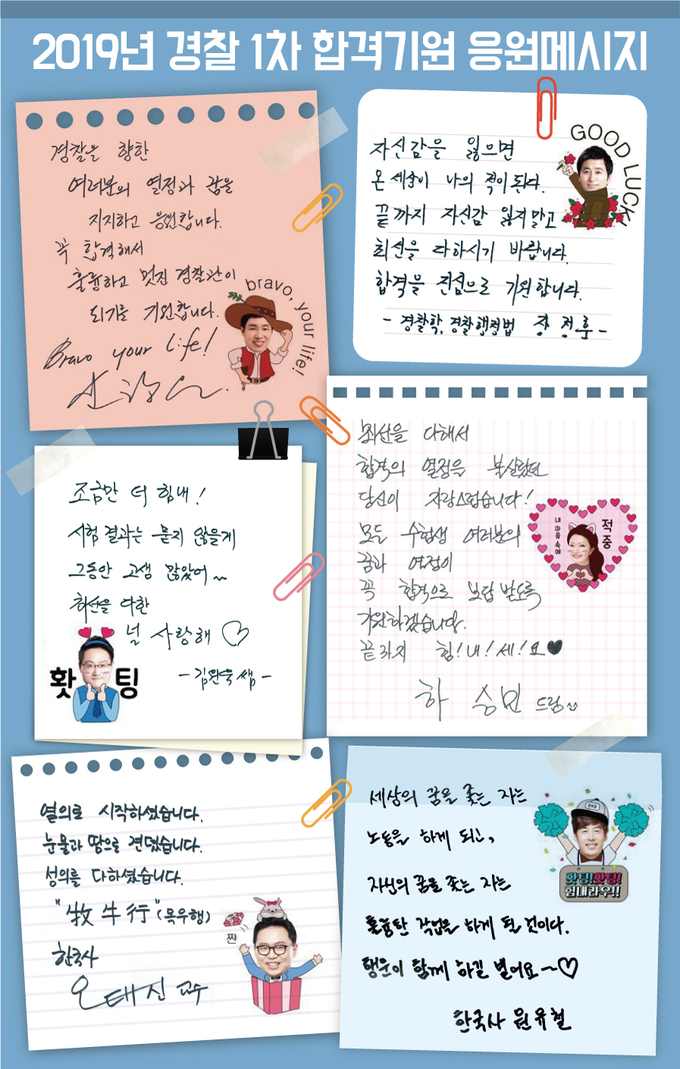 2019년 경찰 1차 합격기원 응원메시지
경찰을 향한
여러분의 열정과 꿈을
지지하고 응원합니다.
꼭 합격해서
훌륭하고 멋진 경찰관이
되기를 기원합니다.
Bravo your Life!
bravo, your life!
자신감을 잃으면
온 세상이 나의 적이 된다.
끝까지 자신감 잃지말고
최선을 다하시기 바랍니다.
합격을 진심으로 기원합니다.
- 경찰학, 경찰행정법 장 정훈 -
GOOD LUCK!
조금만 더 힘내!
시험 결과는 묻지 않을게
그동안 고생 많았어~
최선을 다한
널 사랑해 ♡
- 김한욱쌤 -
홧팅
최선을 다해서
합격의 열정을 불살랐던
당신이 자랑스럽습니다!
모든 수험생 여러분의
꿈과 여정이
꼭 합격으로 보답 받도록
기원하겠습니다.
끝까지 힘!내!세!요♥
하 승민 드림
내 마음 속에
적중
열의로 시작하셨습니다.
눈물과 땀으로 견뎠습니다.
성의를 다하셨습니다.
"牧牛行"(목우행)
한국사
오태진 교수
짠
세상의 꿈을 좇는 자는
노동을 하게 되고,
자신의 꿈을 좇는 자는
훌륭한 작업을 하게 될 것이다.
행운이 함께 하길 빌어요~♡
한국사 원유철
홧팅!홧팅!
힘내라우!!